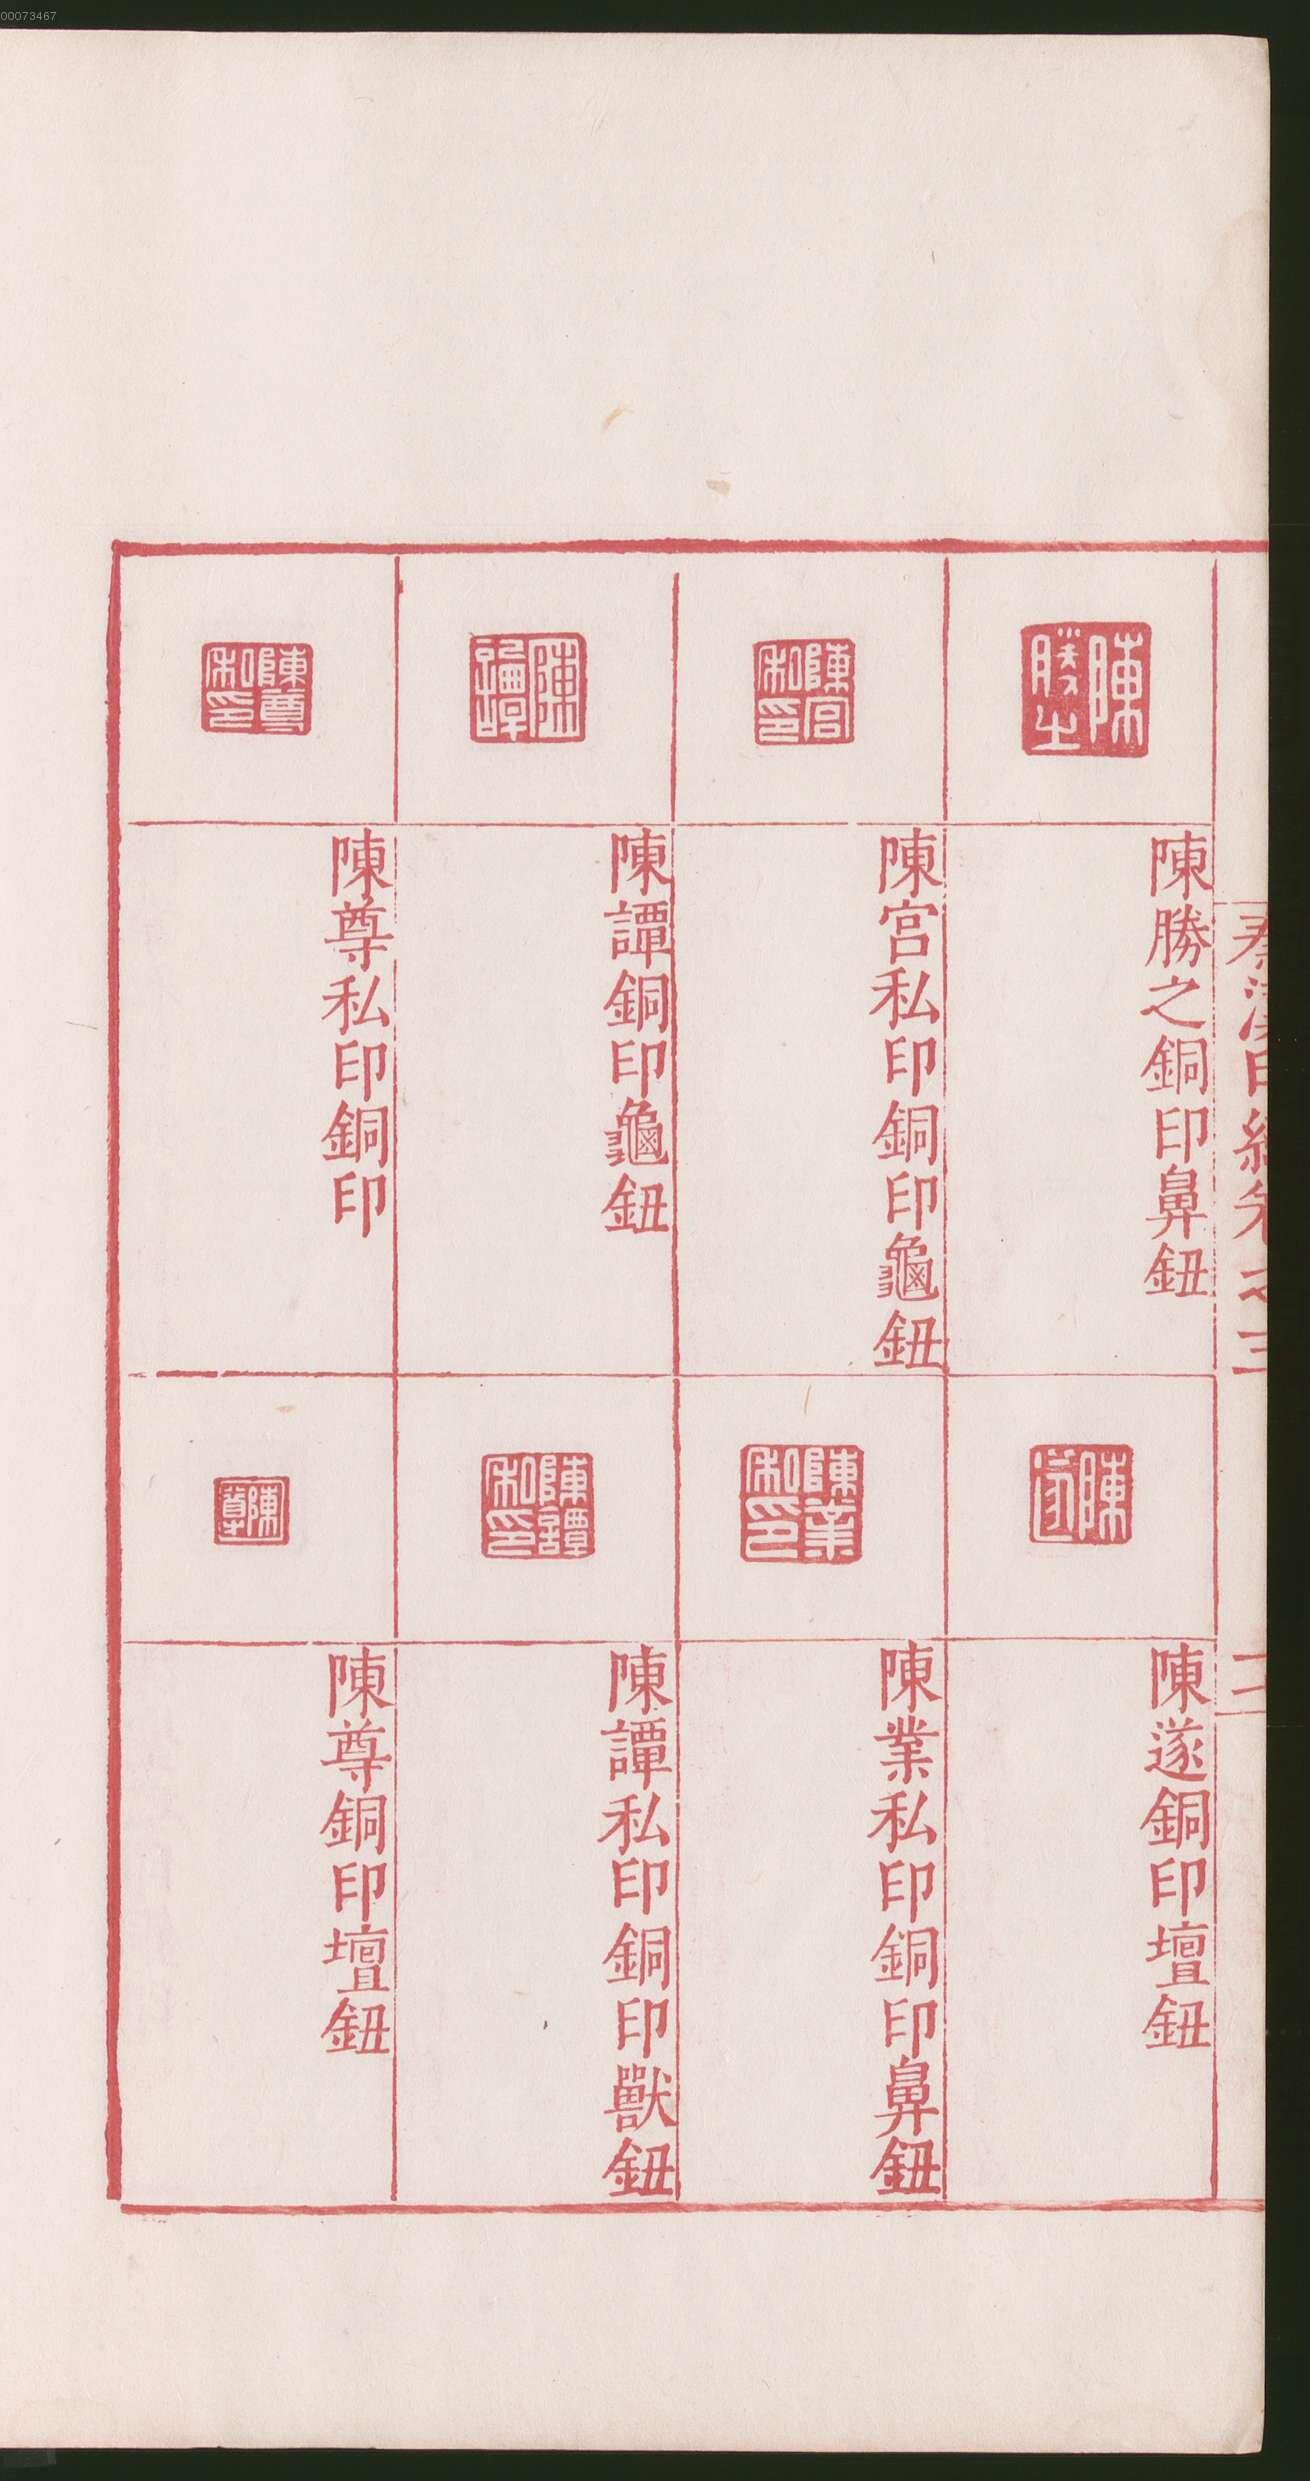 00073467
秦漢印統卷之三
三
陳勝之
陳勝之銅印鼻鈕
陳遂
陳遂銅印壇鈕
陳宮私印
陳宮私印銅印龜鈕
陳業私印
陳業私印銅印鼻鈕
陳譚
陳譚銅印龜鈕
陳譚私印
陳譚私印銅印獸鈕
陳尊私印
陳尊私印銅印
陳尊
陳尊銅印壇鈕